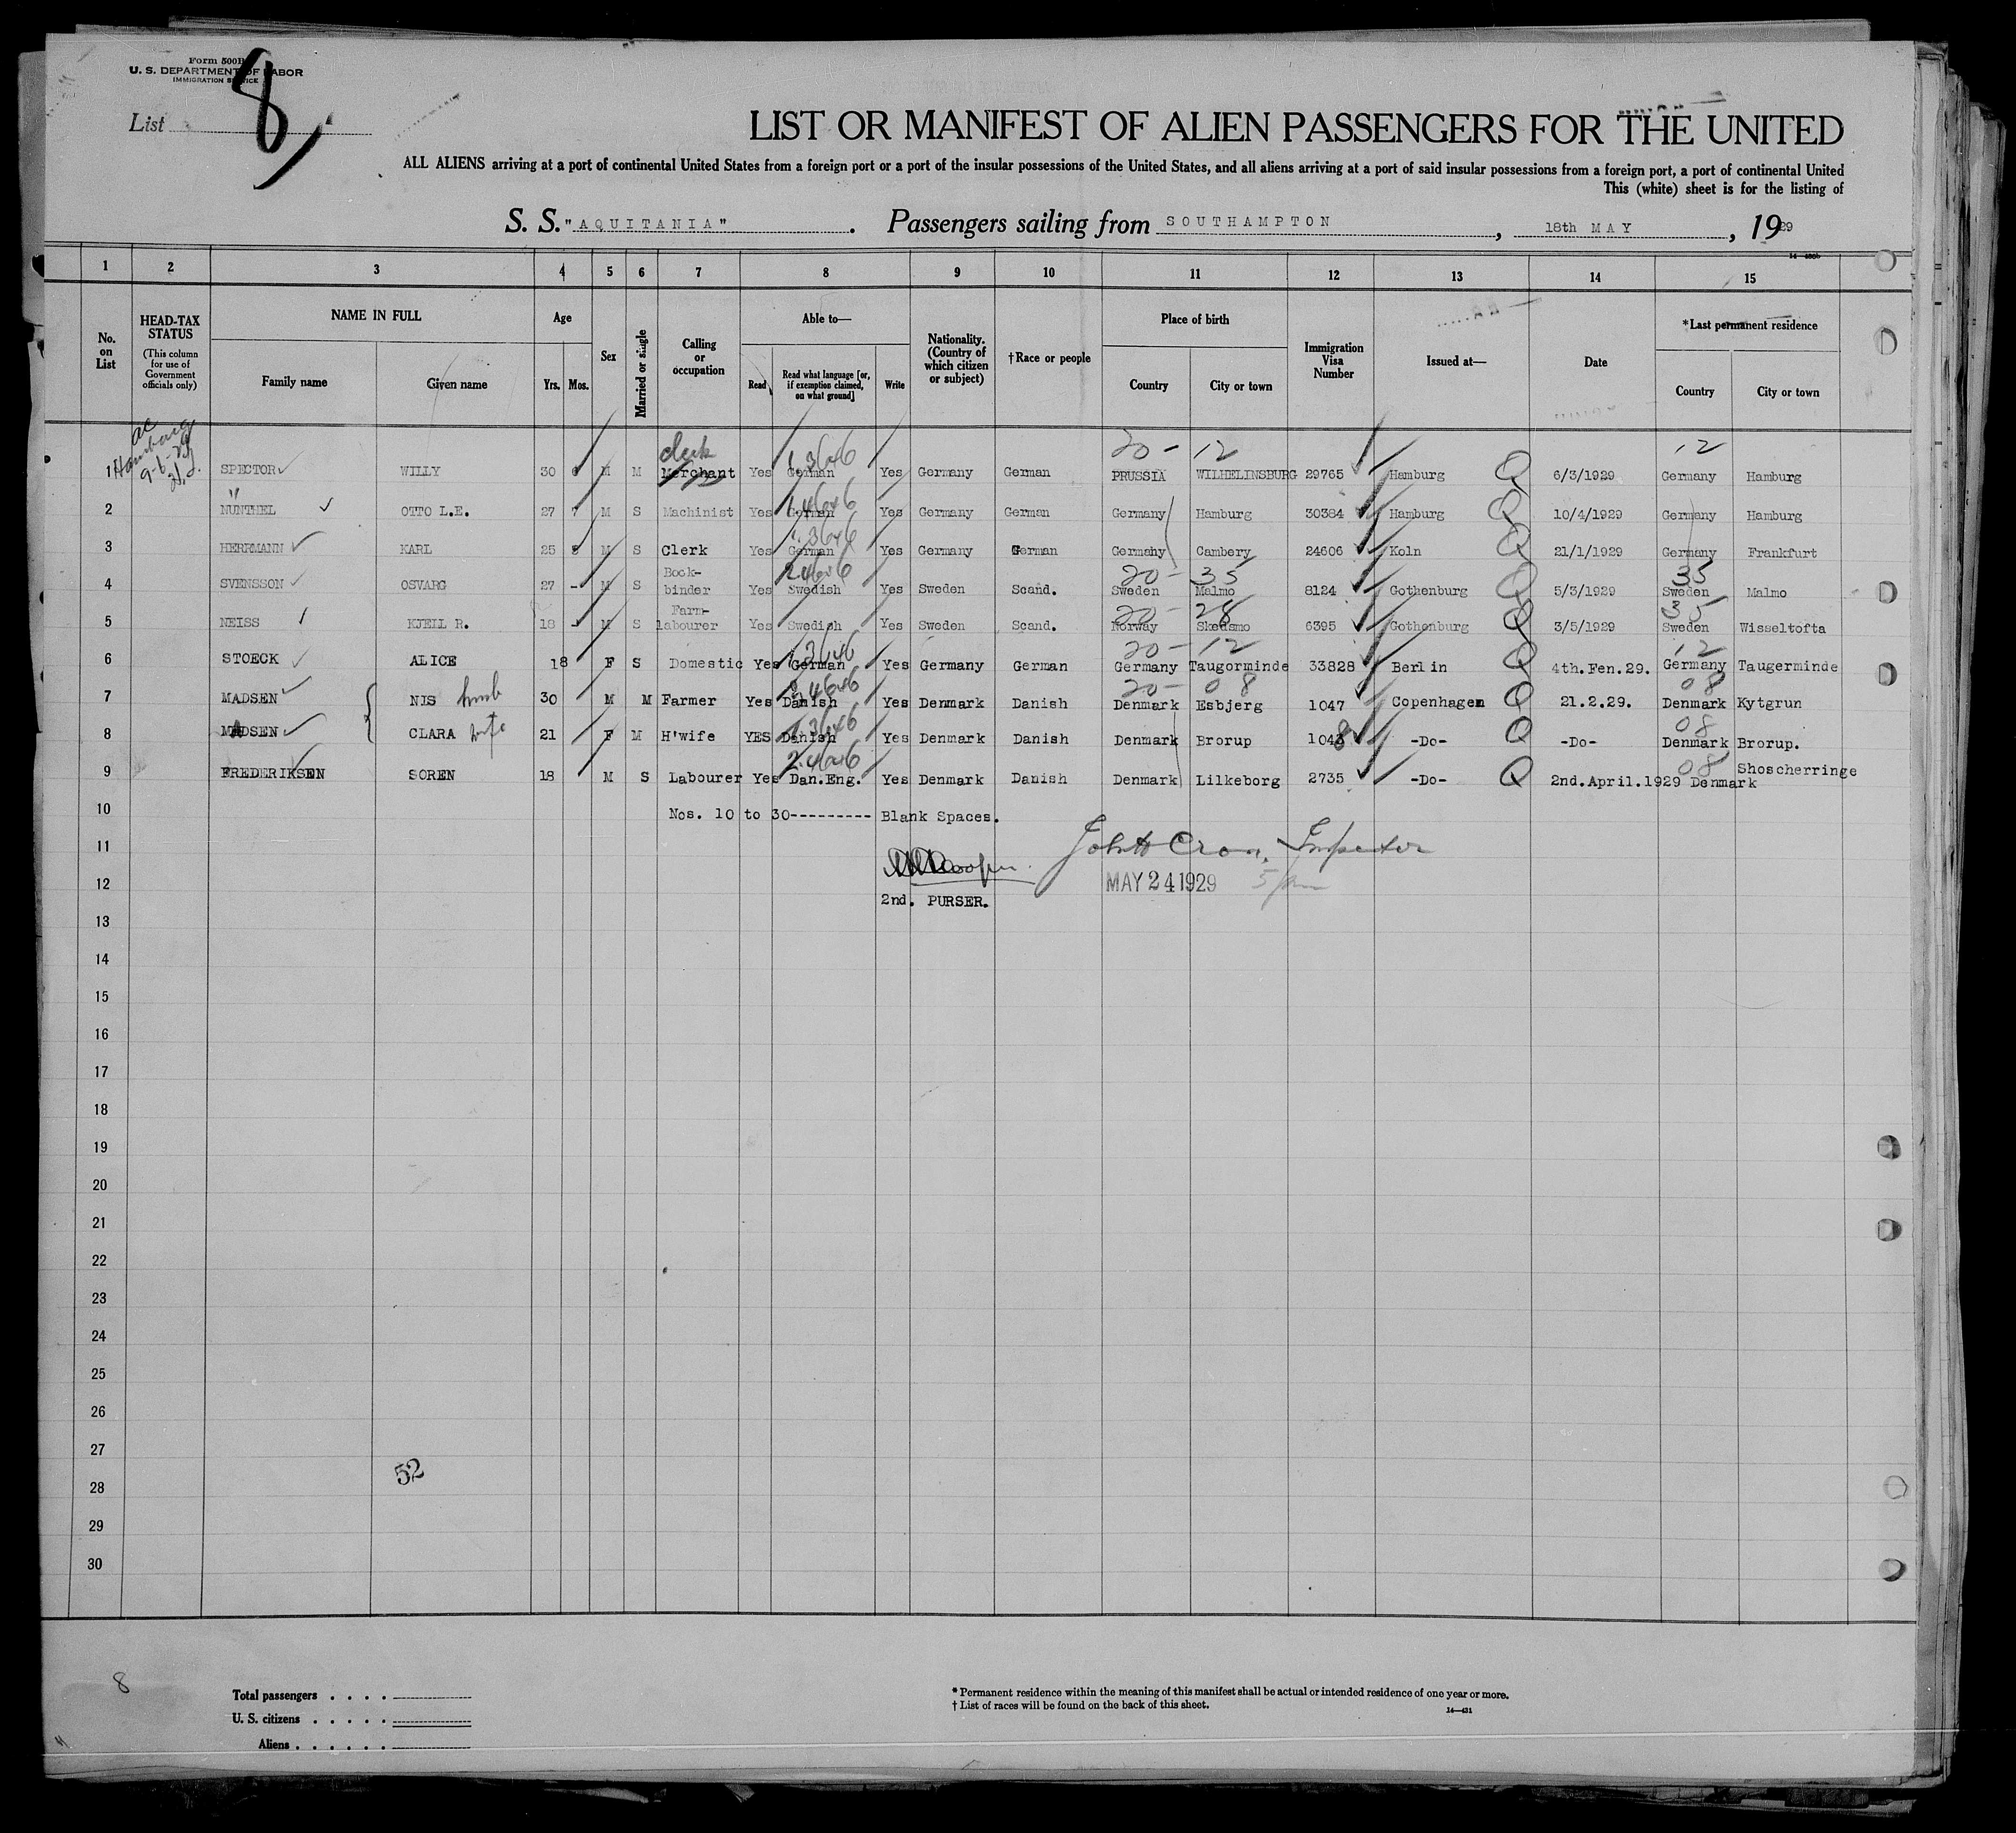 Form 500B
U. S. DEPARTMENT OF LABOR
IMMIGRATION SERVICE
List 8
LIST OR MANIFEST OF ALIEN PASSENGERS FOR THE UNITED
ALL ALIENS arriving at a port of continental United States from a foreign port or a port of the insular possessions of the United States, and all aliens arriving at a port of said insular possessions from a foreign port, a port of continental United
This (white) sheet is for the listing of
S. S. "AQUITANIA". Passengers sailing from SOUTHAMPTON, 18th MAY, 1929
1 2 3 4 5 6 7 8 9 10 11 12 13 14 15
No. on List
HEAD-TAX STATUS
(This column for use of Government officials only)
NAME IN FULL
Family name Given name
Age
Yrs. Mos.
Sex
Married or single
Calling or occupation
Able to—
Read
Read what language [or, if exemption claimed, on what ground]
Write
Nationality. (Country of which citizen or subject)
†Race or people
Place of birth
Country City or town
Immigration Visa Number
Issued at—
Date
*Last permanent residence
Country City or town
Hamburg 9-6-
clerk 20 - 12 12
1 SPECTOR WILLY 30 M M Merchant Yes German Yes Germany German PRUSSIA WILHELINSBURG 29765 Hamburg Q 6/3/1929 Germany Hamburg
2 NUNTHEL OTTO L.E. 27 7 M S Machinist Yes German Yes Germany German Germany Hamburg 30384 Hamburg Q 10/4/1929 Germany Hamburg
3 HERRMANN KARL 25 M S Clerk Yes German Yes Germany German Germany Cambery 24606 Koln Q 21/1/1929 Germany Frankfurt
20 - 35 35
4 SVENSSON OSVARG 27 - M S Book-binder Yes Swedish Yes Sweden Scand. Sweden Malmo 8124 Gothenburg Q 5/3/1929 Sweden Malmo
20 - 28 35
5 NEISS KJELL R. 18 - M S Farm-labourer Yes Swedish Yes Sweden Scand. Norway Skedsmo 6395 Gothenburg Q 3/5/1929 Sweden Wisseltofta
20 - 12 12
6 STOECK ALICE 18 F S Domestic Yes German Yes Germany German Germany Taugorminde 33828 Berlin Q 4th.Fen.29. Germany Taugerminde
20 - 08 08
7 MADSEN NIS husb 30 M M Farmer Yes Danish Yes Denmark Danish Denmark Esbjerg 1047 Copenhagen Q 21.2.29. Denmark Kytgrun
08
8 MADSEN CLARA wife 21 F M H'wife YES Danish Yes Denmark Danish Denmark Brorup 1048 -Do- Q -Do- Denmark Brorup.
08
9 FREDERIKSEN SOREN 18 M S Labourer Yes Dan.Eng. Yes Denmark Danish Denmark Lilkeborg 2735 -Do- Q 2nd.April.1929 Denmark Shoscherringe
10 Nos. 10 to 30--------- Blank Spaces.
11 Inspector
12 MAY 24 1929
2nd. PURSER.
13
14
15
16
17
18
19
20
21
22
23
24
25
26
27
52
28
29
30
8
Total passengers . . . .
U. S. citizens . . . . .
Aliens . . . . . .
* Permanent residence within the meaning of this manifest shall be actual or intended residence of one year or more.
† List of races will be found on the back of this sheet.
14—431